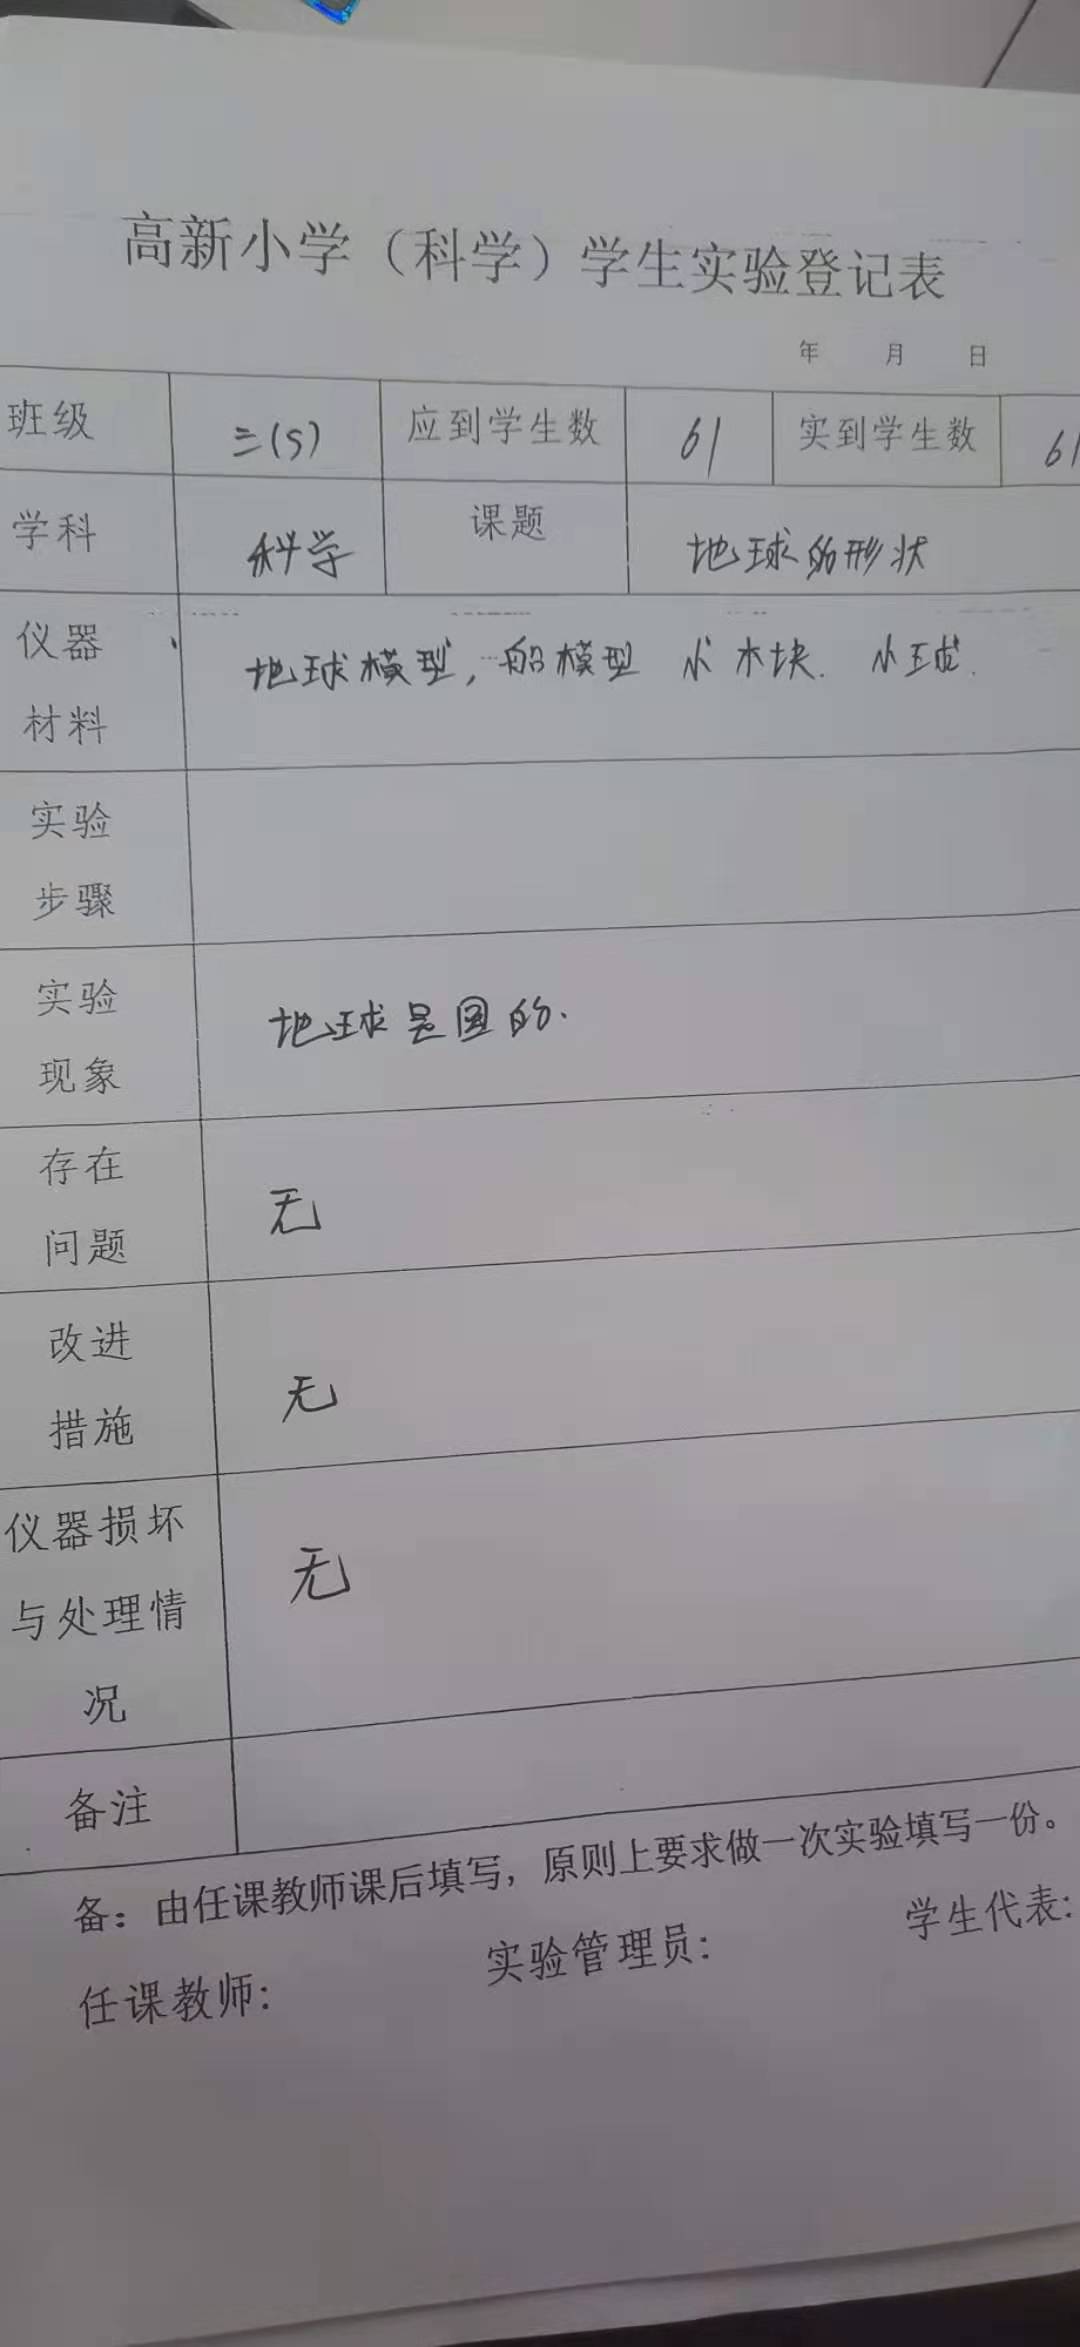 高新小学（科学）学生实验登记表
年 月 日
班级 三(5) 应到学生数 61 实到学生数 61
学科 科学 课题 地球的形状
仪器 地球模型，船模型 小木块. 小球.
材料
实验
步骤
实验 地球是圆的.
现象
存在 无
问题
改进 无
措施
仪器损坏 无
与处理情
况
备注
备：由任课教师课后填写，原则上要求做一次实验填写一份。
任课教师： 实验管理员： 学生代表：